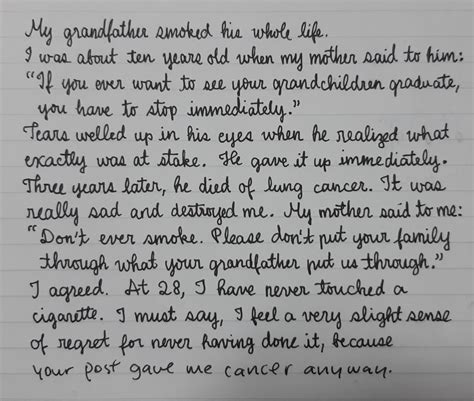 My grandfather smoked his whole life.
I was about ten years old when my mother said to him:
“If you ever want to see your grandchildren graduate,
you have to stop immediately.”
Tears welled up in his eyes when he realized what
exactly was at stake. He gave it up immediately.
Three years later, he died of lung cancer. It was
really sad and destroyed me. My mother said to me:
“Don't ever smoke. Please don't put your family
through what your grandfather put us through.”
I agreed. At 28, I have never touched a
cigarette. I must say, I feel a very slight sense
of regret for never having done it, because
your post gave me cancer anyway.